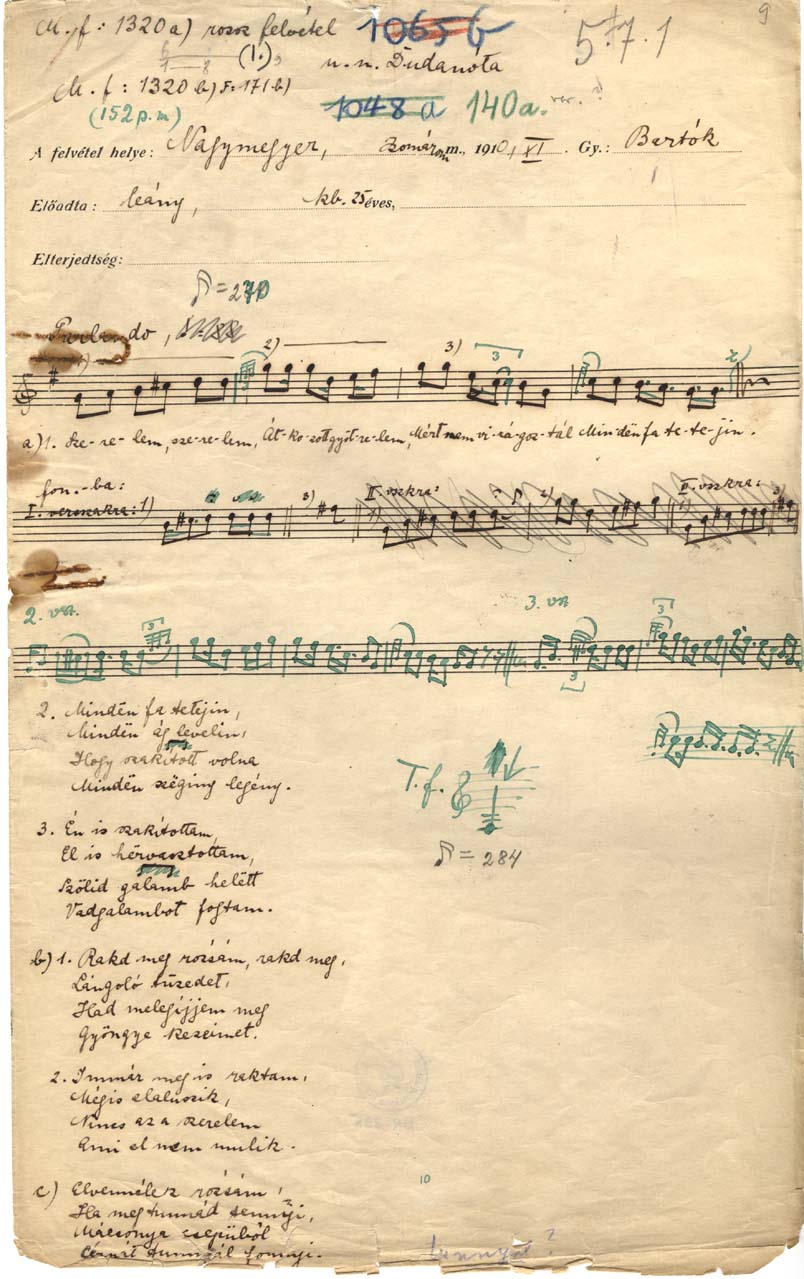 M. f: 1320 a) rossz felvétel 1065 b 5.7.1 9
(1.) u. n. Dudanóta
M. f: 1320 b) F: 171 b)
(152 p. m) 1048 a 140a.
A felvétel helye: Nagymegyer, Komárom m., 1910, XI. Gy.: Bartók
Előadta: leány, kb. 25 éves,
Elterjedtség:
= 270
Parlando,
1) 2) 3) 3
a) 1. Sze-re-lem, sze-re-lem, Át-ko-zott gyöt-re-lem, Mért nem vi-rá-goz-tál Min-dën fa te-te-jin.
fon.-ba:
I. versszakra: 1) 3) II. vszkra: 2) II. vszkra: 3)
2. vsz. 3. vsz
3 3 3
2. Mindën fa tetejin,
Mindën ág levelin,
Hogy szakított volna
Mindën szëginy legény.
T. f.
3. Én is szakítottam,
El is hërvasztottam,
= 284
Szëlid galamb helëtt
Vadgalambot fogtam.
b) 1. Rakd meg rózsám, rakd meg,
Lángoló tüzedet,
Had melegíjjem meg
Gyöngye kezeimet.
2. Immár meg is raktam,
Mégis elaluszik,
Nincs az a szerelem
Ami el nem mulik.
10
c) Elvennélek rózsám,
Ha megtunnád
Mácsonya csepüből
Cérnát fonnyi.